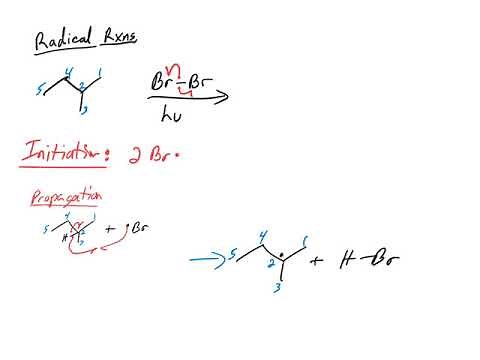 Radical Rxns
5 4 2 1 3
Br-Br
hν
Initiation: 2 Br•
Propagation
5 4 H 2 1 3 + •Br
5 4 2 • 1 3 + H-Br